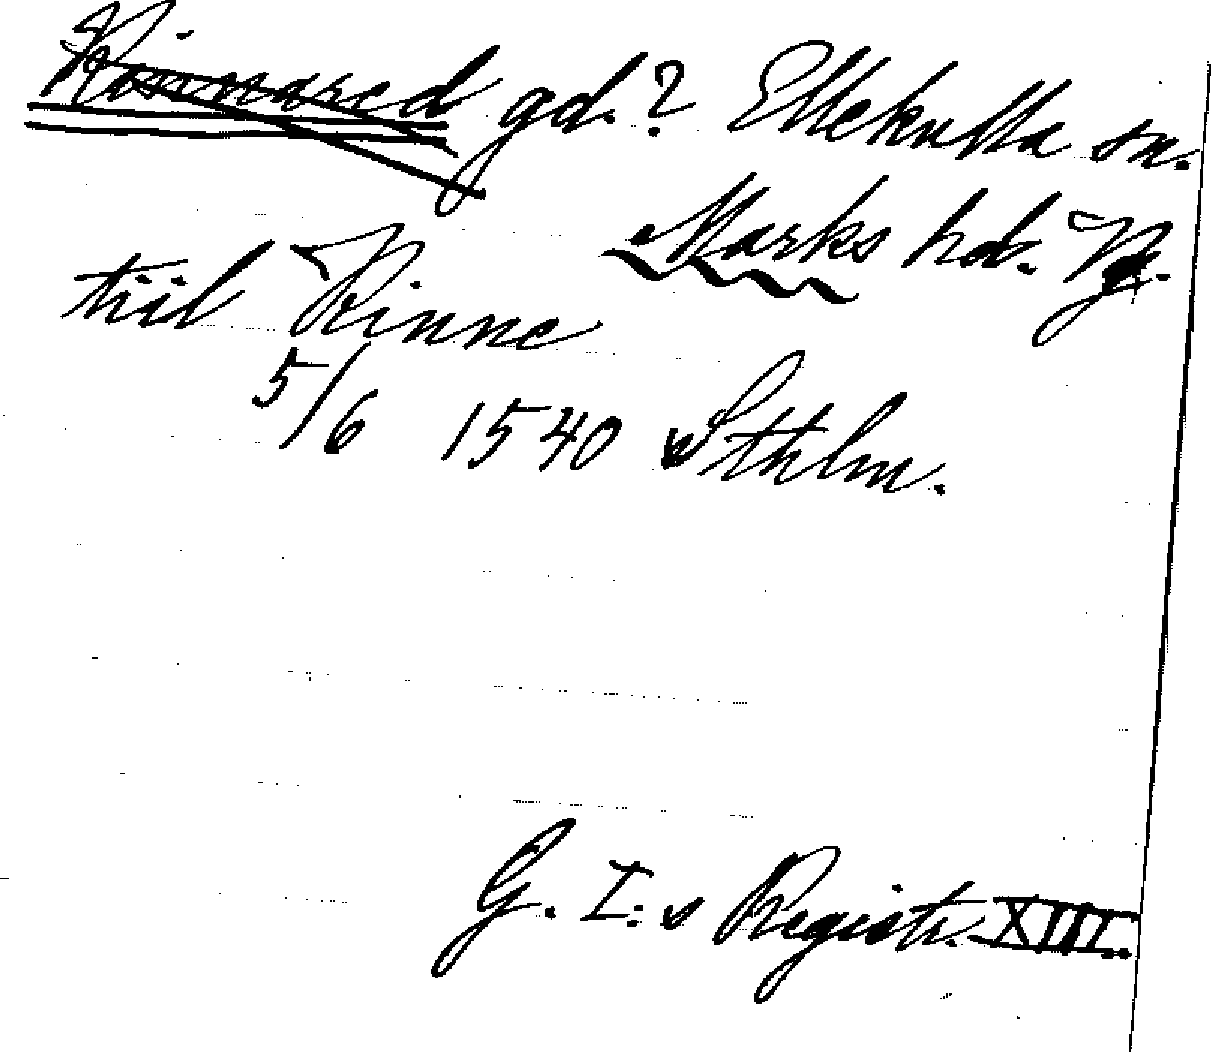 Rinnared gd.? Ellekulla sn.
Marks hd. Vg.
tiil Rinne
5/6 1540 Sthlm.
G. I:s Registr. XIII.